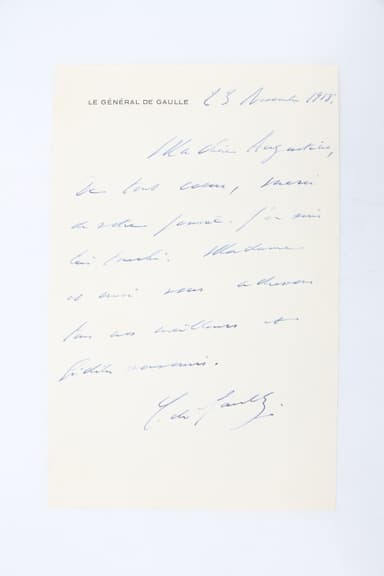 LE GÉNÉRAL DE GAULLE
23 Novembre 1958.
Ma chère Augustine,
de tout coeur, merci
de votre pensée. J'en suis
très touché. Madame
et moi vous adressons
tous nos meilleurs et
fidèles souvenirs.
C. de Gaulle.